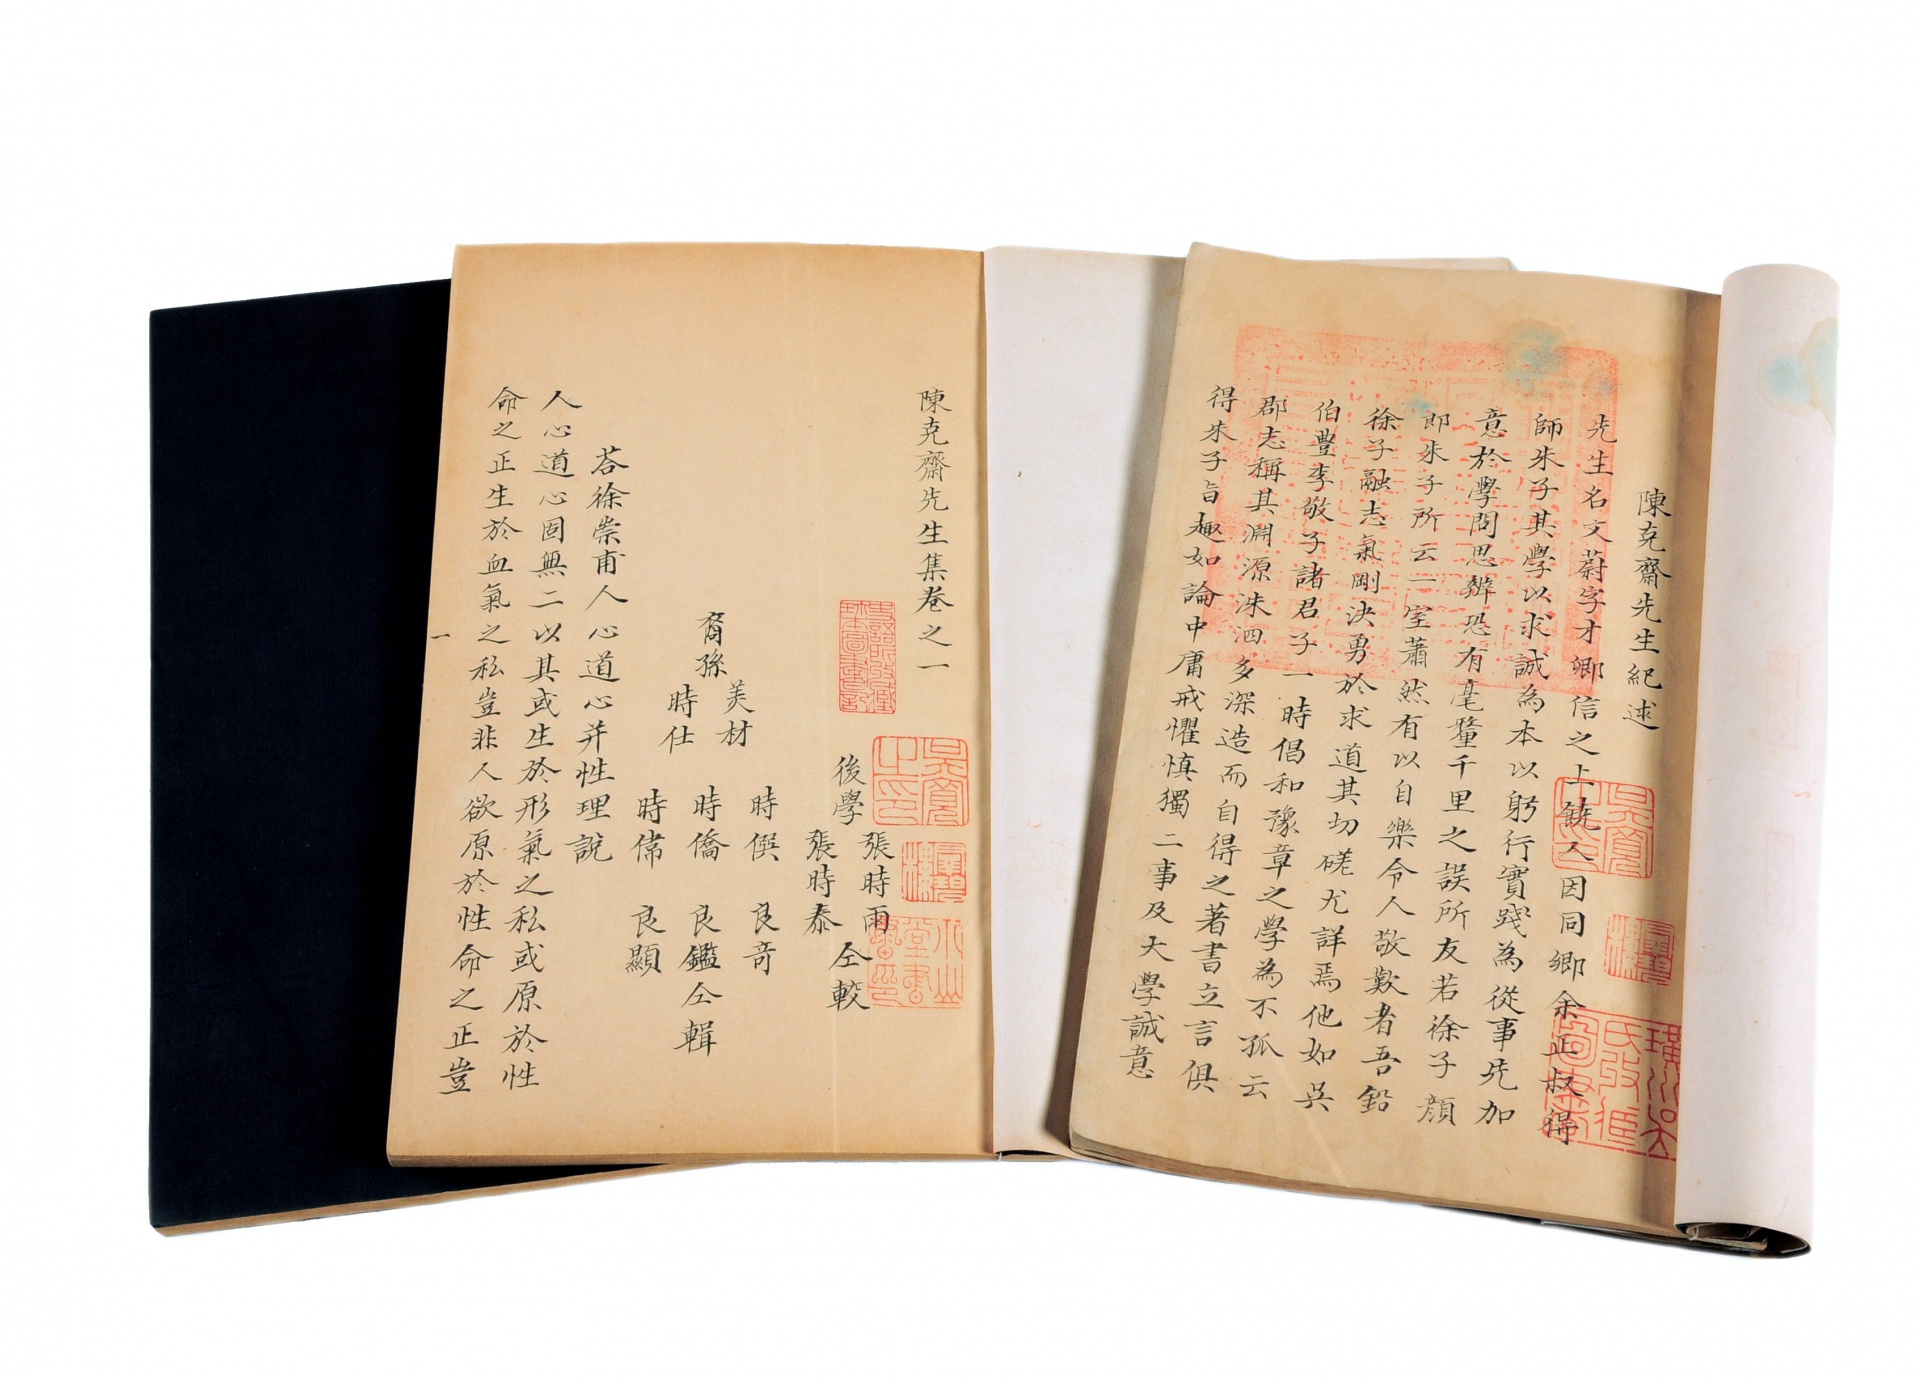 陳克齋先生紀述
先生名文蔚字才卿信之上饒人因同鄉余正叔得
師朱子其學以求誠為本以躬行實踐為從事旣加
意於學問思辨恐有毫釐千里之誤所友若徐子顏
即朱子所云一室蕭然有以自樂令人敬歎者吾鉛
徐子融志氣剛決勇於求道其切磋尤詳焉他如吳
伯豐李敬子諸君子一時倡和豫章之學為不孤云
郡志稱其淵源洙泗多深造而自得之著書立言俱
得朱子旨趣如論中庸戒懼慎獨二事及大學誠意
陳克齋先生集卷之一
後學 張時雨 張時泰 仝較
裔孫 美材 時仕 時僎 時僑 時常 良奇 良鑑 良顯 仝輯
荅徐崇甫人心道心并性理說
人心道心固無二以其或生於形氣之私或原於性
命之正生於血氣之私豈非人欲原於性命之正豈
一
吳寬之印